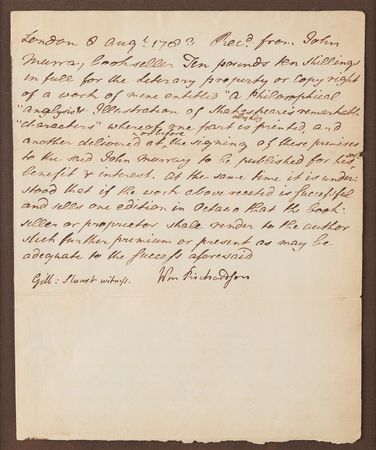 London 8 Augt. 1783 Recd. from John
Murray bookseller Ten pounds ten shillings
in full for the literary property or copy right
of a work of mine entitled "a Philosophical
"analysis & Illustration of Shakespeare's remarkable
"characters" whereof one part is printed, and
another delivered at, the signing of these premises
to the said John Murray to be published for his
benefit & interest. At the same time it is under:
stood that if the work above recited is successful
and sells one edition in Octavo that the book:
seller or proprietor shall render to the author
such further premium or present as may be
adequate to the success aforesaid
Gilb: Stuart witness. Wm Richardson